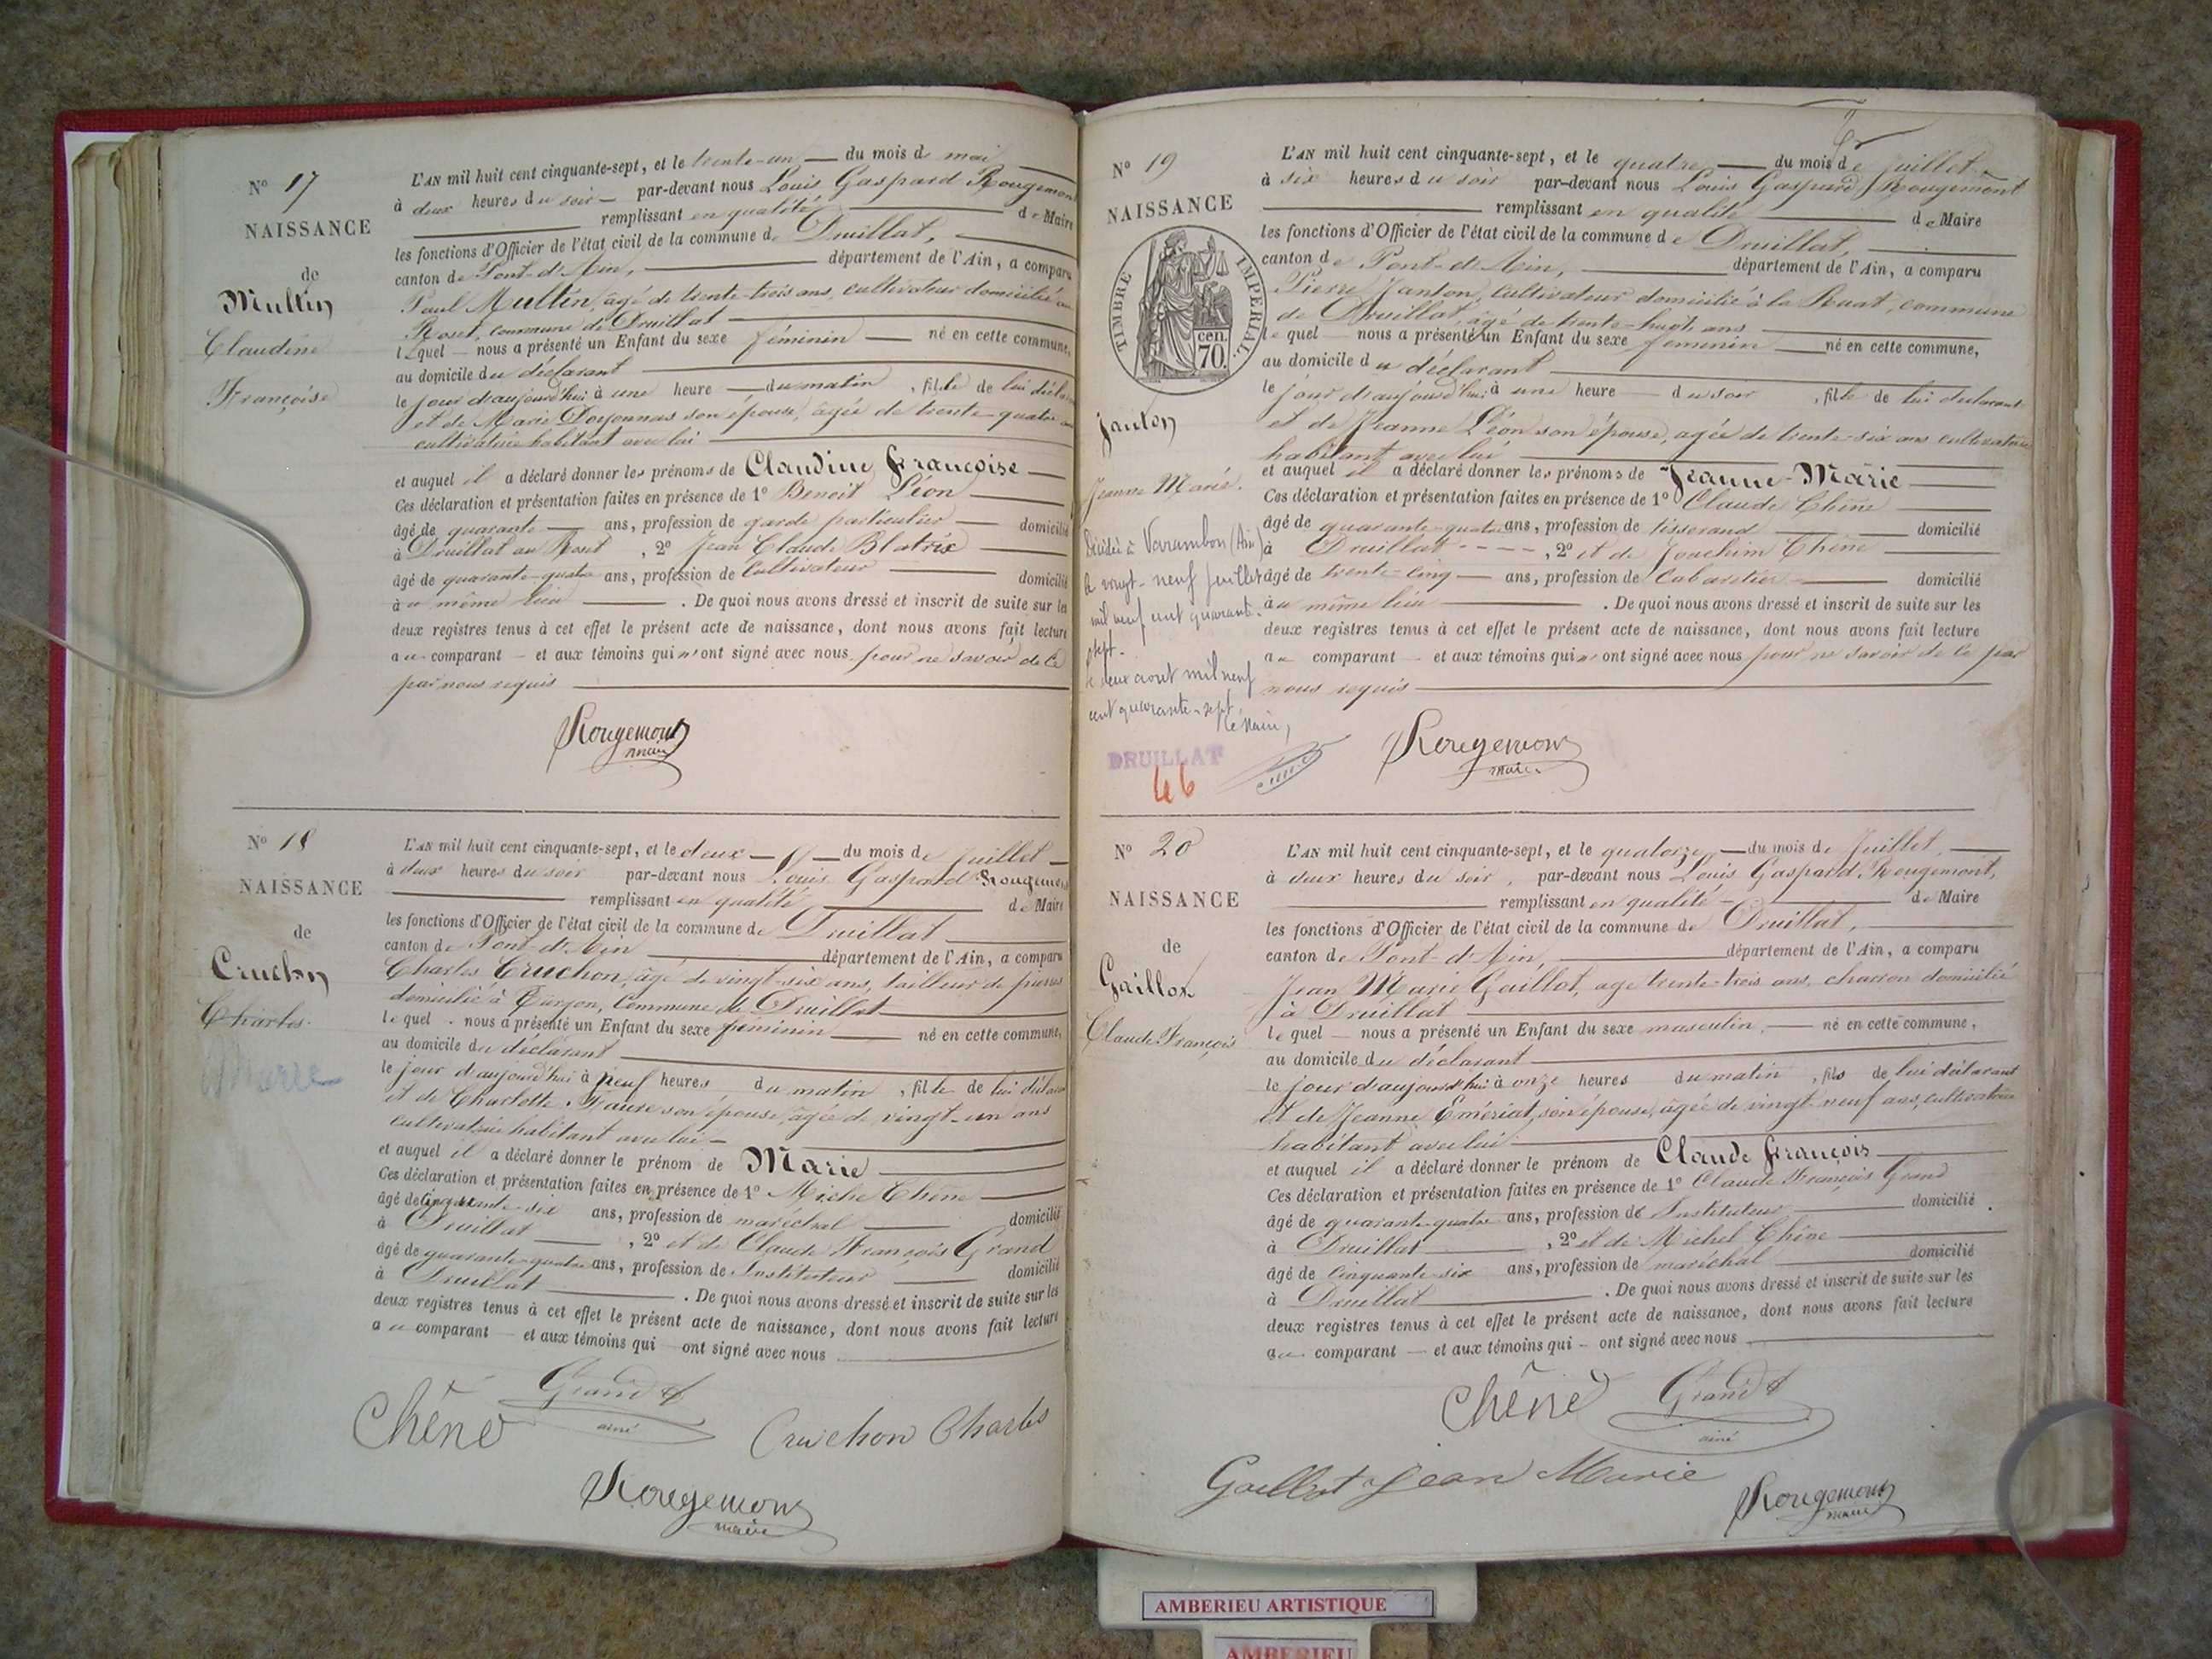 N° 17
NAISSANCE
de
Multin
Claudine
Françoise
L'AN mil huit cent cinquante-sept, et le trente-un du mois de mai
à deux heures du soir par-devant nous Louis Gaspard Rougemont
remplissant en qualité de Maire
les fonctions d'Officier de l'état civil de la commune de Druillat,
canton de Pont-d'Ain, département de l'Ain, a comparu
Paul Multin, âgé de trente-trois ans, cultivateur domicilié au
Roset, commune de Druillat
lequel nous a présenté un Enfant du sexe féminin né en cette commune,
au domicile du déclarant
le jour d'aujourd'hui à une heure du matin, fille de lui déclarant
et de Marie son épouse, âgée de trente-quatre ans
cultivatrice habitant avec lui
et auquel il a déclaré donner les prénoms de Claudine Françoise
Ces déclaration et présentation faites en présence de 1° Benoit Léon
âgé de quarante ans, profession de garde particulier domicilié
à Druillat au Roset, 2° Jean Claude Blatrix
âgé de quarante-quatre ans, profession de Cultivateur domicilié
au même lieu. De quoi nous avons dressé et inscrit de suite sur les
deux registres tenus à cet effet le présent acte de naissance, dont nous avons fait lecture
au comparant et aux témoins qui n'ont signé avec nous pour ne savoir de ce
par nous requis
Rougemont
maire
N° 18
NAISSANCE
de
Cruchon
Charles
Marie
L'AN mil huit cent cinquante-sept, et le deux du mois de Juillet
à deux heures du soir par-devant nous Louis Gaspard Rougemont
remplissant en qualité de Maire
les fonctions d'Officier de l'état civil de la commune de Druillat
canton de Pont-d'Ain département de l'Ain, a comparu
Charles Cruchon, âgé de vingt-six ans, tailleur de pierres
domicilié à Turgon, Commune de Druillat
lequel nous a présenté un Enfant du sexe féminin né en cette commune,
au domicile du déclarant
le jour d'aujourd'hui à neuf heures du matin, fille de lui déclarant
et de Charlotte son épouse, âgée de vingt-un ans
cultivatrice habitant avec lui
et auquel il a déclaré donner le prénom de Marie
Ces déclaration et présentation faites en présence de 1° Michel Chêne
âgé de cinquante-six ans, profession de maréchal domicilié
à Druillat, 2° et de Claude François Grand
âgé de quarante-quatre ans, profession de Instituteur domicilié
à Druillat. De quoi nous avons dressé et inscrit de suite sur les
deux registres tenus à cet effet le présent acte de naissance, dont nous avons fait lecture
au comparant et aux témoins qui ont signé avec nous
Chêne Grand
ainé
Cruchon Charles
Rougemont
maire
N° 19
NAISSANCE
TIMBRE IMPERIAL
cen.
70.
Janton
Jeanne Marie.
Décédée à Varambon (Ain)
le vingt-neuf juillet
mil neuf cent quarante-
sept.
le deux août mil neuf
cent quarante-sept
Le Maire,
DRUILLAT
46
L'AN mil huit cent cinquante-sept, et le quatre du mois de Juillet
à six heures du soir par-devant nous Louis Gaspard Rougemont
remplissant en qualité de Maire
les fonctions d'Officier de l'état civil de la commune de Druillat,
canton de Pont-d'Ain, département de l'Ain, a comparu
Pierre Janton, Cultivateur domicilié à la Ruat, commune
de Druillat, âgé de trente-huit ans
lequel nous a présenté un Enfant du sexe féminin né en cette commune,
au domicile du déclarant
le jour d'aujourd'hui à une heure du soir, fille de lui déclarant
et de Jeanne Léon son épouse, âgée de trente-six ans cultivatrice
habitant avec lui
et auquel il a déclaré donner les prénoms de Jeanne-Marie
Ces déclaration et présentation faites en présence de 1° Claude Chêne
âgé de quarante-quatre ans, profession de tisserand domicilié
à Druillat, 2° et de Joachim Chêne
âgé de trente-cinq ans, profession de Cabaretier domicilié
au même lieu. De quoi nous avons dressé et inscrit de suite sur les
deux registres tenus à cet effet le présent acte de naissance, dont nous avons fait lecture
au comparant et aux témoins qui n'ont signé avec nous pour ne savoir de ce par
nous requis
Rougemont
maire
N° 20
NAISSANCE
de
Gaillot
Claude François
L'AN mil huit cent cinquante-sept, et le quatorze du mois de Juillet,
à deux heures du soir, par-devant nous Louis Gaspard Rougemont,
remplissant en qualité de Maire
les fonctions d'Officier de l'état civil de la commune de Druillat,
canton de Pont-d'Ain, département de l'Ain, a comparu
Jean Marie Gaillot, age trente-trois ans, charron domicilié
à Druillat
lequel nous a présenté un Enfant du sexe masculin, né en cette commune,
au domicile du déclarant
le jour d'aujourd'hui à onze heures du matin, fils de lui déclarant
et de Jeanne Emériat, son épouse, âgée de vingt-neuf ans, cultivatrice
habitant avec lui
et auquel il a déclaré donner le prénom de Claude François
Ces déclaration et présentation faites en présence de 1° Claude François Grand
âgé de quarante-quatre ans, profession de Instituteur domicilié
à Druillat, 2° et de Michel Chêne
âgé de cinquante-six ans, profession de maréchal domicilié
à Druillat. De quoi nous avons dressé et inscrit de suite sur les
deux registres tenus à cet effet le présent acte de naissance, dont nous avons fait lecture
au comparant et aux témoins qui ont signé avec nous
Chêne Grand
ainé
Gaillot Jean Marie
Rougemont
maire
AMBERIEU ARTISTIQUE
AMBERIEU